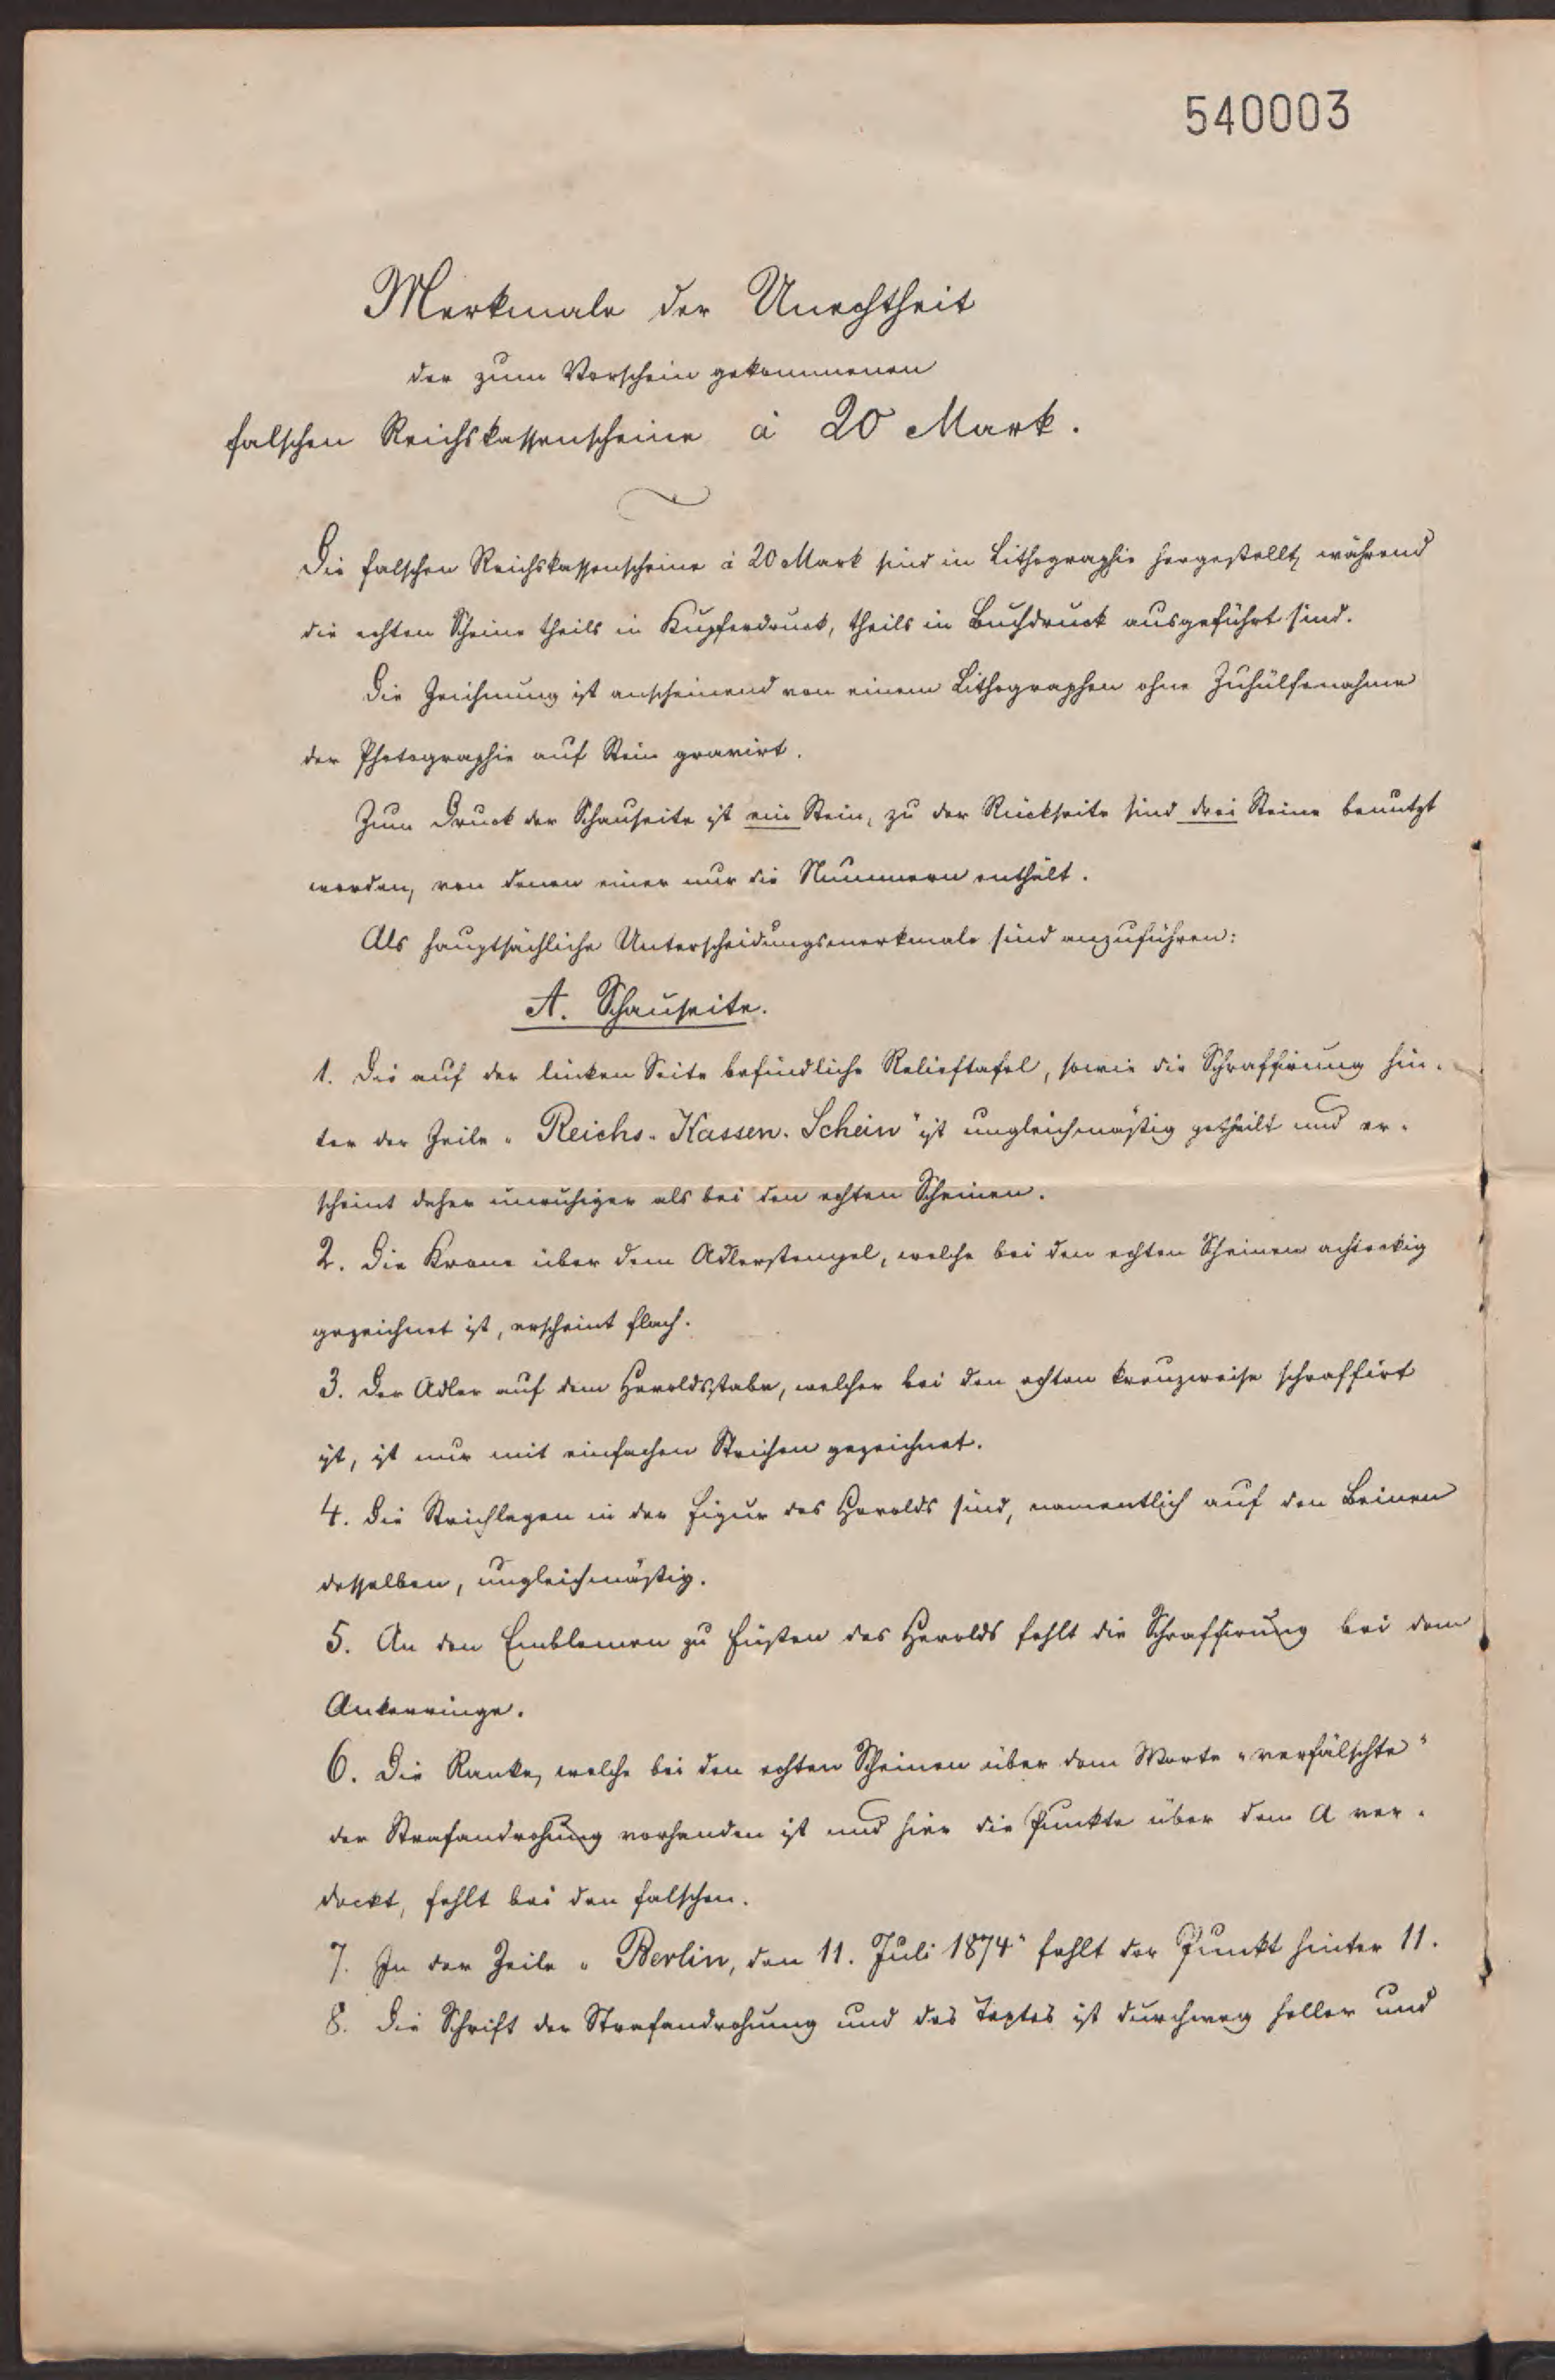 540003
Merkmale der Unechtheit
der zum Vorschein gekommenen
falschen Reichskassenscheine à 20 Mark.
Die falschen Reichskassenscheine à 20 Mark sind in Lithographie hergestellt, während
die echten Scheine theils in Kupferdruck, theils in Buchdruck ausgeführt sind.
Die Zeichnung ist anscheinend von einem Lithographen ohne Zuhülfenahme
der Photographie auf Stein gravirt.
Zum Druck der Schauseite ist ein Stein, zu der Rückseite sind drei Steine benutzt
worden, von denen einer nur die Nummern enthält.
Als hauptsächliche Unterscheidungsmerkmale sind anzuführen:
A. Schauseite.
1. Die auf der linken Seite befindliche Relieftafel, sowie die Schraffirung hin-
ter der Zeile "Reichs-Kassen-Schein" ist ungleichmäßig getheilt und er-
scheint daher unruhiger als bei den echten Scheinen.
2. Die Krone über dem Adlerstempel, welche bei den echten Scheinen achteckig
gezeichnet ist, erscheint flach.
3. Der Adler auf dem Heroldsstabe, welcher bei den echten kreuzweise schraffirt
ist, ist nur mit einfachen Strichen gezeichnet.
4. Die Strichlagen in der Figur des Herolds sind, namentlich auf den Beinen
desselben, ungleichmäßig.
5. An den Emblemen zu Füßen des Herolds fehlt die Schraffirung bei dem
Ankerringe.
6. Die Ranke, welche bei den echten Scheinen über dem Worte "verfälschte"
der Strafandrohung vorhanden ist und hier die Punkte über dem A ver-
deckt, fehlt bei den falschen.
7. In der Zeile "Berlin, den 11. Juli 1874" fehlt der Punkt hinter 11.
8. Die Schrift der Strafandrohung und des Textes ist durchweg heller und